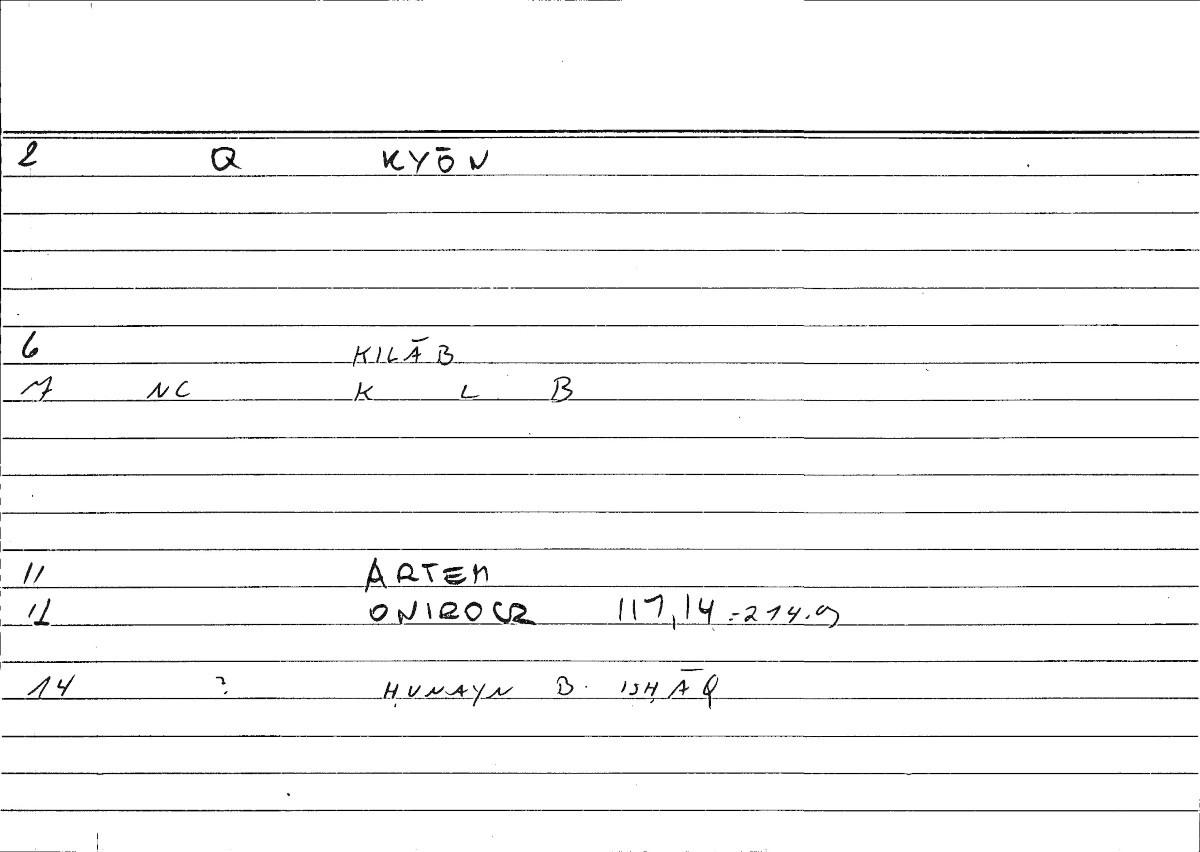 2 Q KYŌN
6 KILĀB
7 NC K L B
11 ARTEM
12 ONIROCR 117,14 = 214.9
14 ? ḤUNAYN B. ISḤĀQ